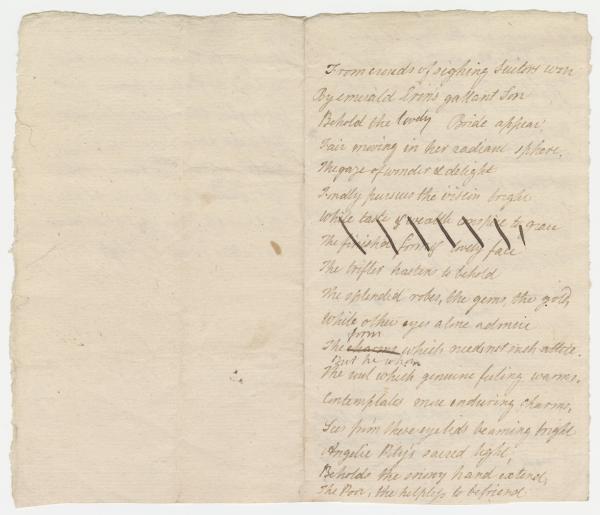 From crowds of sighing Suitors won
By emerald Erin's gallant Son
Behold the lovely Bride appear,
Fair moving in her radiant sphere.
The gaze of wonder & delight
Fondly pursues the vision bright
While taste & wealth conspire to grace
The finish'd form & lovely face
The trifler hastens to behold
The splendid robes, the gems, the gold,
While other eyes alone admire
form
The charms which needs not such attire.
But he whom
The soul which genuine feeling warms,
Contemplates more enduring charms,
Sees from those eyelids beaming bright
Angelic Pity's sacred light,
Beholds the snowy hand extend,
The Poor, the helpless to befriend